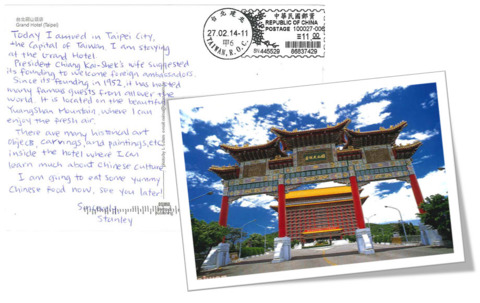 台北圓山飯店
Grand Hotel (Taipei)
Today I arrived in Taipei City,
the Capital of Taiwan. I am staying
at the Grand Hotel.
President Chiang Kai-Shek's wife suggested
its founding to welcome foreign ambassadors.
Since its founding in 1952, it has hosted
many famous guests from all over the
world. It is located on the beautiful
Yuangshan Mountain, where I can
enjoy the fresh air.
There are many historical art
objects, carvings, and paintings, etc.
inside the hotel where I can
learn much about Chinese culture.
I am going to eat some yummy
Chinese food now, see you later!
Stanley
台北
27.02.14-11
甲6
TAIWAN, R.O.C.
中華民國郵資
REPUBLIC OF CHINA
POSTAGE 100027-006
11.00
445529 86637429